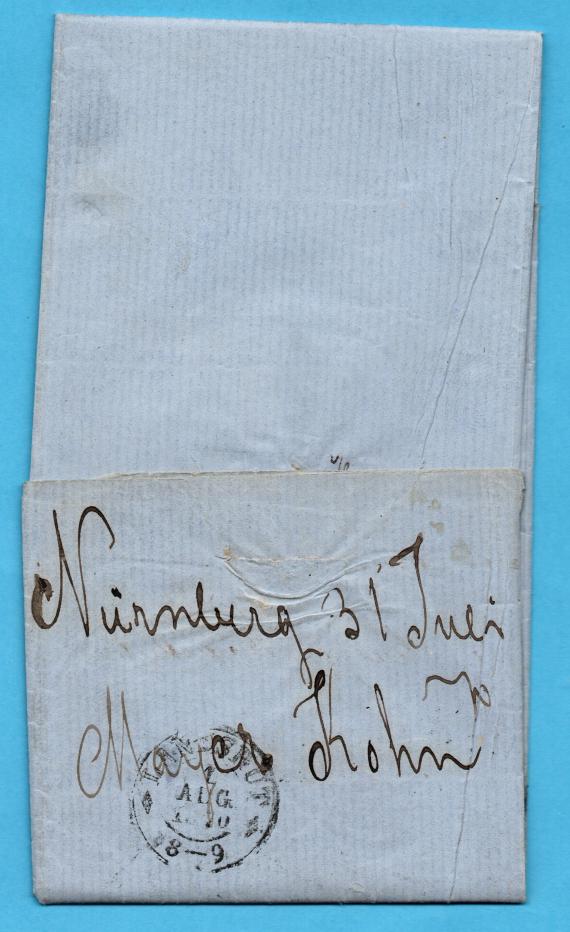 Nürnberg 31 Juli
Mayer Kohn
AUG
8—9